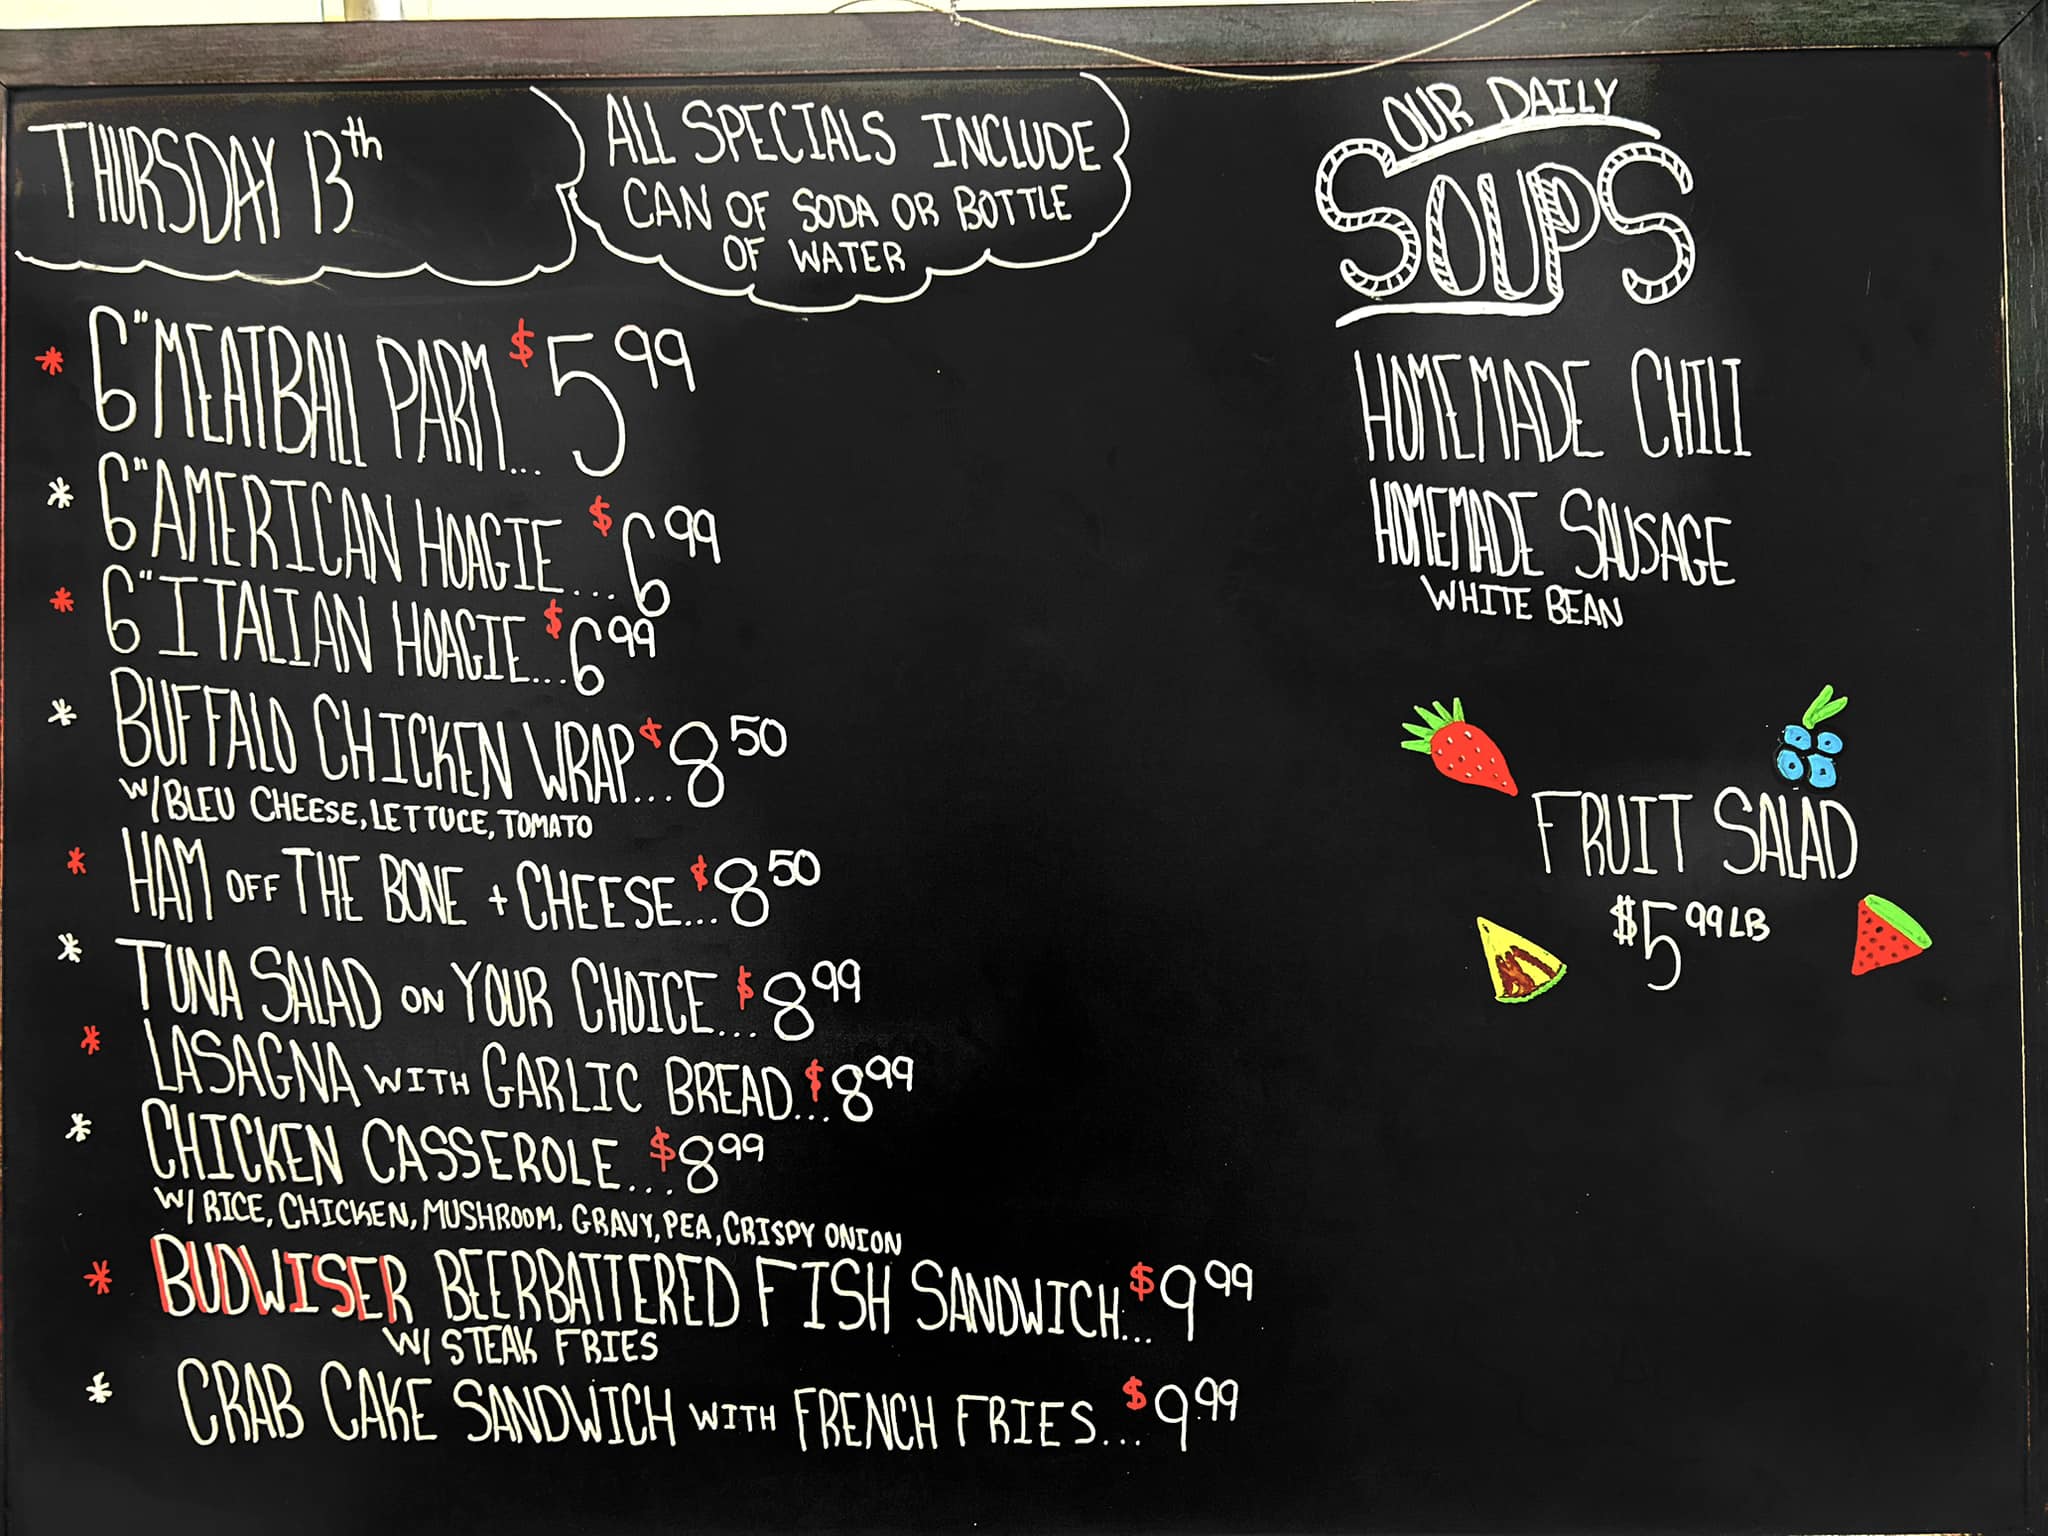 THURSDAY 13th
ALL SPECIALS INCLUDE
CAN OF SODA OR BOTTLE
OF WATER
* 6" MEATBALL PARM... $5.99
* 6" AMERICAN HOAGIE... $6.99
* 6" ITALIAN HOAGIE... $6.99
* BUFFALO CHICKEN WRAP... $8.50
W/ BLEU CHEESE, LETTUCE, TOMATO
* HAM OFF THE BONE + CHEESE... $8.50
* TUNA SALAD ON YOUR CHOICE... $8.99
* LASAGNA WITH GARLIC BREAD... $8.99
* CHICKEN CASSEROLE... $8.99
W/ RICE, CHICKEN, MUSHROOM, GRAVY, PEA, CRISPY ONION
* BUDWISER BEERBATTERED FISH SANDWICH... $9.99
W/ STEAK FRIES
* CRAB CAKE SANDWICH WITH FRENCH FRIES... $9.99
OUR DAILY
SOUPS
HOMEMADE CHILI
HOMEMADE SAUSAGE
WHITE BEAN
FRUIT SALAD
$5.99 LB